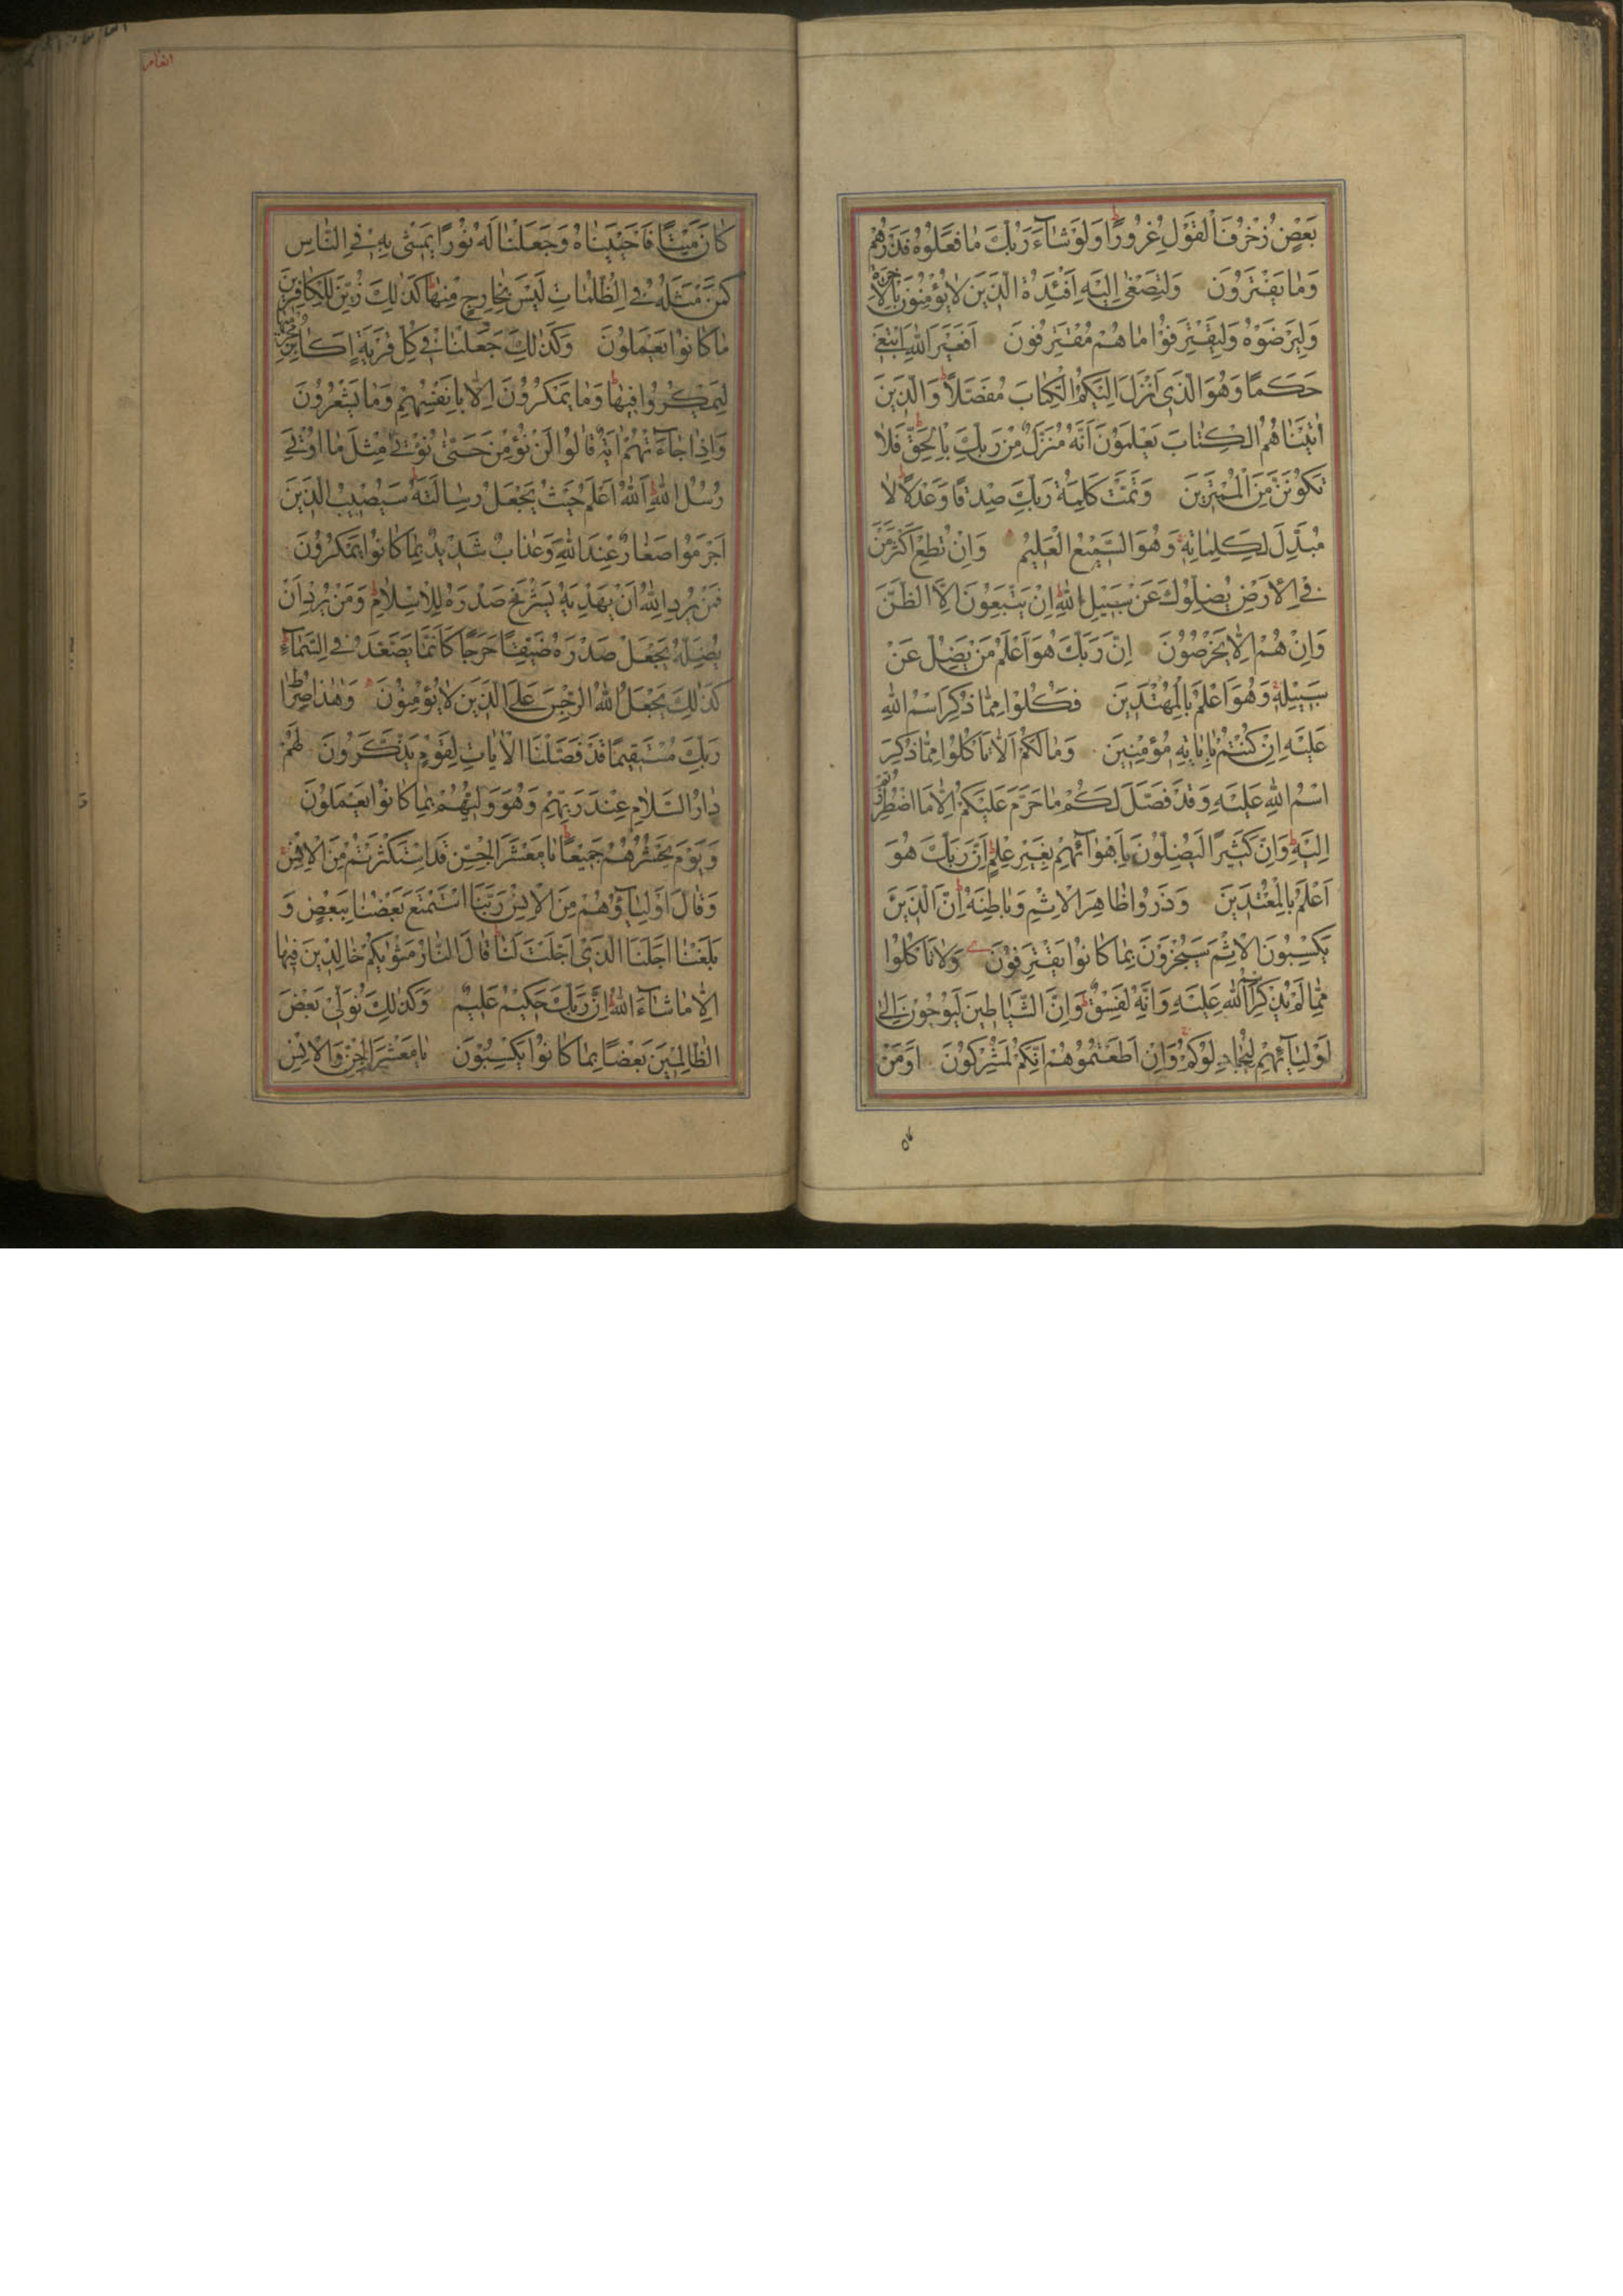 بَعْضٍ زُخْرُفَ الْقَوْلِ غُرُورًا وَلَوْ شَاءَ رَبُّكَ مَا فَعَلُوهُ فَذَرْهُمْ
وَمَا يَفْتَرُونَ وَلِتَصْغَىٰ إِلَيْهِ أَفْئِدَةُ الَّذِينَ لَا يُؤْمِنُونَ بِالْآخِرَةِ
وَلِيَرْضَوْهُ وَلِيَقْتَرِفُوا مَا هُمْ مُقْتَرِفُونَ أَفَغَيْرَ اللَّهِ أَبْتَغِي
حَكَمًا وَهُوَ الَّذِي أَنْزَلَ إِلَيْكُمُ الْكِتَابَ مُفَصَّلًا وَالَّذِينَ
آتَيْنَاهُمُ الْكِتَابَ يَعْلَمُونَ أَنَّهُ مُنَزَّلٌ مِنْ رَبِّكَ بِالْحَقِّ فَلَا
تَكُونَنَّ مِنَ الْمُمْتَرِينَ وَتَمَّتْ كَلِمَةُ رَبِّكَ صِدْقًا وَعَدْلًا لَا
مُبَدِّلَ لِكَلِمَاتِهِ وَهُوَ السَّمِيعُ الْعَلِيمُ وَإِنْ تُطِعْ أَكْثَرَ مَنْ
فِي الْأَرْضِ يُضِلُّوكَ عَنْ سَبِيلِ اللَّهِ إِنْ يَتَّبِعُونَ إِلَّا الظَّنَّ
وَإِنْ هُمْ إِلَّا يَخْرُصُونَ إِنَّ رَبَّكَ هُوَ أَعْلَمُ مَنْ يَضِلُّ عَنْ
سَبِيلِهِ وَهُوَ أَعْلَمُ بِالْمُهْتَدِينَ فَكُلُوا مِمَّا ذُكِرَ اسْمُ اللَّهِ
عَلَيْهِ إِنْ كُنْتُمْ بِآيَاتِهِ مُؤْمِنِينَ وَمَا لَكُمْ أَلَّا تَأْكُلُوا مِمَّا ذُكِرَ
اسْمُ اللَّهِ عَلَيْهِ وَقَدْ فَصَّلَ لَكُمْ مَا حَرَّمَ عَلَيْكُمْ إِلَّا مَا اضْطُرِرْتُمْ
إِلَيْهِ وَإِنَّ كَثِيرًا لَيُضِلُّونَ بِأَهْوَائِهِمْ بِغَيْرِ عِلْمٍ إِنَّ رَبَّكَ هُوَ
أَعْلَمُ بِالْمُعْتَدِينَ وَذَرُوا ظَاهِرَ الْإِثْمِ وَبَاطِنَهُ إِنَّ الَّذِينَ
يَكْسِبُونَ الْإِثْمَ سَيُجْزَوْنَ بِمَا كَانُوا يَقْتَرِفُونَ وَلَا تَأْكُلُوا
مِمَّا لَمْ يُذْكَرِ اسْمُ اللَّهِ عَلَيْهِ وَإِنَّهُ لَفِسْقٌ وَإِنَّ الشَّيَاطِينَ لَيُوحُونَ إِلَىٰ
أَوْلِيَائِهِمْ لِيُجَادِلُوكُمْ وَإِنْ أَطَعْتُمُوهُمْ إِنَّكُمْ لَمُشْرِكُونَ أَوَمَنْ
كَانَ مَيْتًا فَأَحْيَيْنَاهُ وَجَعَلْنَا لَهُ نُورًا يَمْشِي بِهِ فِي النَّاسِ
كَمَنْ مَثَلُهُ فِي الظُّلُمَاتِ لَيْسَ بِخَارِجٍ مِنْهَا كَذَٰلِكَ زُيِّنَ لِلْكَافِرِينَ
مَا كَانُوا يَعْمَلُونَ وَكَذَٰلِكَ جَعَلْنَا فِي كُلِّ قَرْيَةٍ أَكَابِرَ مُجْرِمِيهَا
لِيَمْكُرُوا فِيهَا وَمَا يَمْكُرُونَ إِلَّا بِأَنْفُسِهِمْ وَمَا يَشْعُرُونَ
وَإِذَا جَاءَتْهُمْ آيَةٌ قَالُوا لَنْ نُؤْمِنَ حَتَّىٰ نُؤْتَىٰ مِثْلَ مَا أُوتِيَ
رُسُلُ اللَّهِ اللَّهُ أَعْلَمُ حَيْثُ يَجْعَلُ رِسَالَتَهُ سَيُصِيبُ الَّذِينَ
أَجْرَمُوا صَغَارٌ عِنْدَ اللَّهِ وَعَذَابٌ شَدِيدٌ بِمَا كَانُوا يَمْكُرُونَ
فَمَنْ يُرِدِ اللَّهُ أَنْ يَهْدِيَهُ يَشْرَحْ صَدْرَهُ لِلْإِسْلَامِ وَمَنْ يُرِدْ أَنْ
يُضِلَّهُ يَجْعَلْ صَدْرَهُ ضَيِّقًا حَرَجًا كَأَنَّمَا يَصَّعَّدُ فِي السَّمَاءِ
كَذَٰلِكَ يَجْعَلُ اللَّهُ الرِّجْسَ عَلَى الَّذِينَ لَا يُؤْمِنُونَ وَهَٰذَا صِرَاطُ
رَبِّكَ مُسْتَقِيمًا قَدْ فَصَّلْنَا الْآيَاتِ لِقَوْمٍ يَذَّكَّرُونَ لَهُمْ
دَارُ السَّلَامِ عِنْدَ رَبِّهِمْ وَهُوَ وَلِيُّهُمْ بِمَا كَانُوا يَعْمَلُونَ
وَيَوْمَ يَحْشُرُهُمْ جَمِيعًا يَا مَعْشَرَ الْجِنِّ قَدِ اسْتَكْثَرْتُمْ مِنَ الْإِنْسِ
وَقَالَ أَوْلِيَاؤُهُمْ مِنَ الْإِنْسِ رَبَّنَا اسْتَمْتَعَ بَعْضُنَا بِبَعْضٍ وَ
بَلَغْنَا أَجَلَنَا الَّذِي أَجَّلْتَ لَنَا قَالَ النَّارُ مَثْوَاكُمْ خَالِدِينَ فِيهَا
إِلَّا مَا شَاءَ اللَّهُ إِنَّ رَبَّكَ حَكِيمٌ عَلِيمٌ وَكَذَٰلِكَ نُوَلِّي بَعْضَ
الظَّالِمِينَ بَعْضًا بِمَا كَانُوا يَكْسِبُونَ يَا مَعْشَرَ الْجِنِّ وَالْإِنْسِ